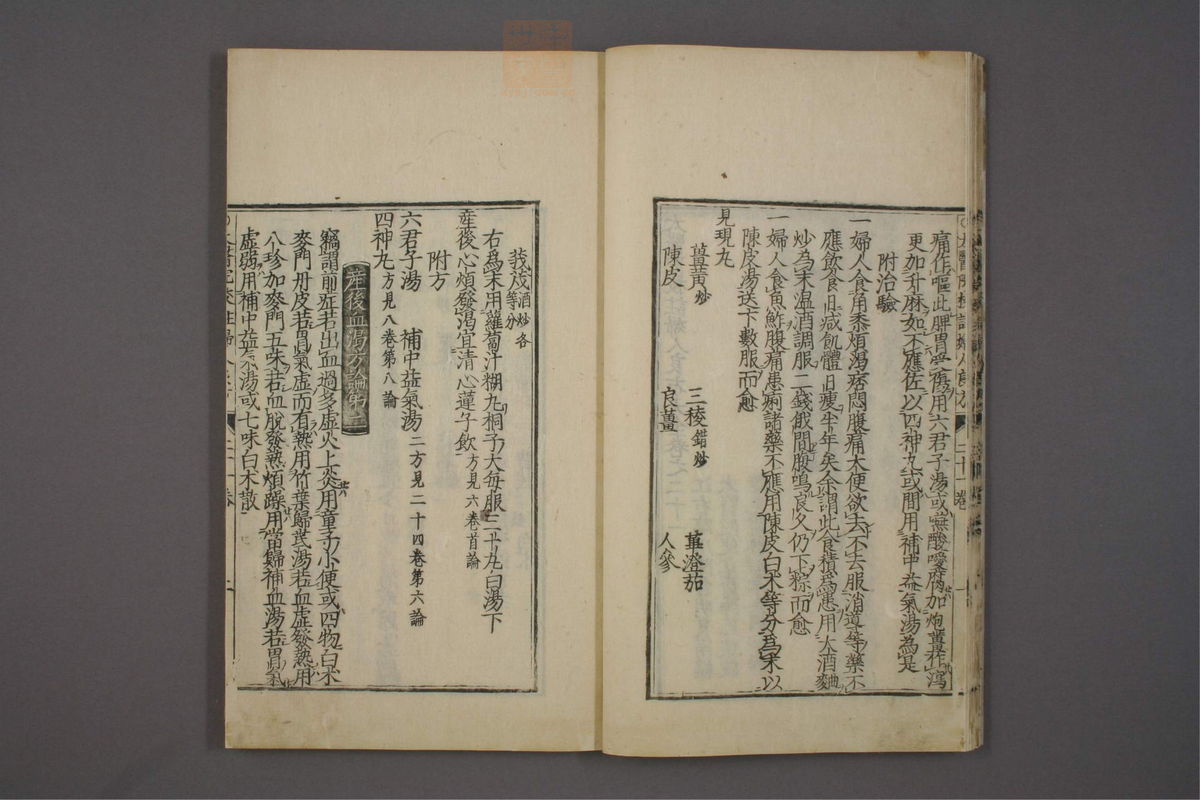 太醫院校註婦人良方 二十一卷
痛作嘔此脾胃受傷用六君子湯或嘸酸噯腐加炮薑作瀉
更加升麻如不應佐以四神丸或間用補中益氣湯為是
附治驗
一婦人食角黍煩渴痞悶腹痛大便欲去不去服消導等藥不
應飲食日減飢體日瘦半年矣余謂此食積爲患用大酒麯
炒爲末温酒調服二錢俄間腹鳴良久仍下粽而愈
一婦人食魚鮓腹痛患痢諸藥不應用陳皮白朮等分爲末以
陳皮湯送下數服而愈
見晛丸
薑黃炒 三稜錯炒 蓽澄茄
陳皮 良薑 人參
莪茂酒炒各等分
右爲末用蘿蔔汁糊丸桐子大每服三十丸白湯下
産後心煩發渴宜清心蓮子飲方見六卷首論
附方
六君子湯 補中益氣湯二方見二十四卷第六論
四神丸方見八卷第八論
産後血渴方論第二
竊謂前症若出血過多虛火上炎用童子小便或四物白朮
麥門丹皮若胃氣虛而有熱用竹葉歸芪湯若血虛發熱用
八珍加麥門五味若血脫發熱煩躁用當歸補血湯若胃氣
虛弱用補中益氣湯或七味白朮散